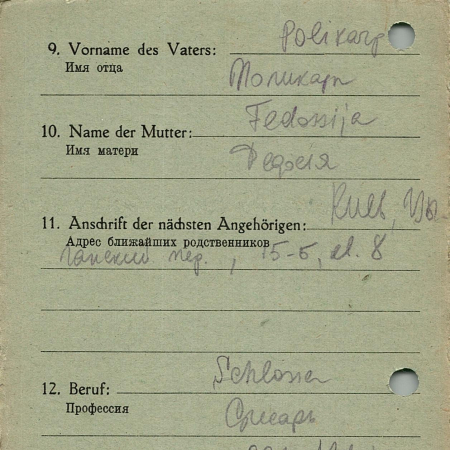 9. Vorname des Vaters: Polikarp
Имя отца Поликарп
10. Name der Mutter: Fedossija
Имя матери Федосія
11. Anschrift der nächsten Angehörigen: Киев,
Адрес ближайших родственников
пер., 15-б,
12. Beruf: Schlosser
Профессия Слесарь